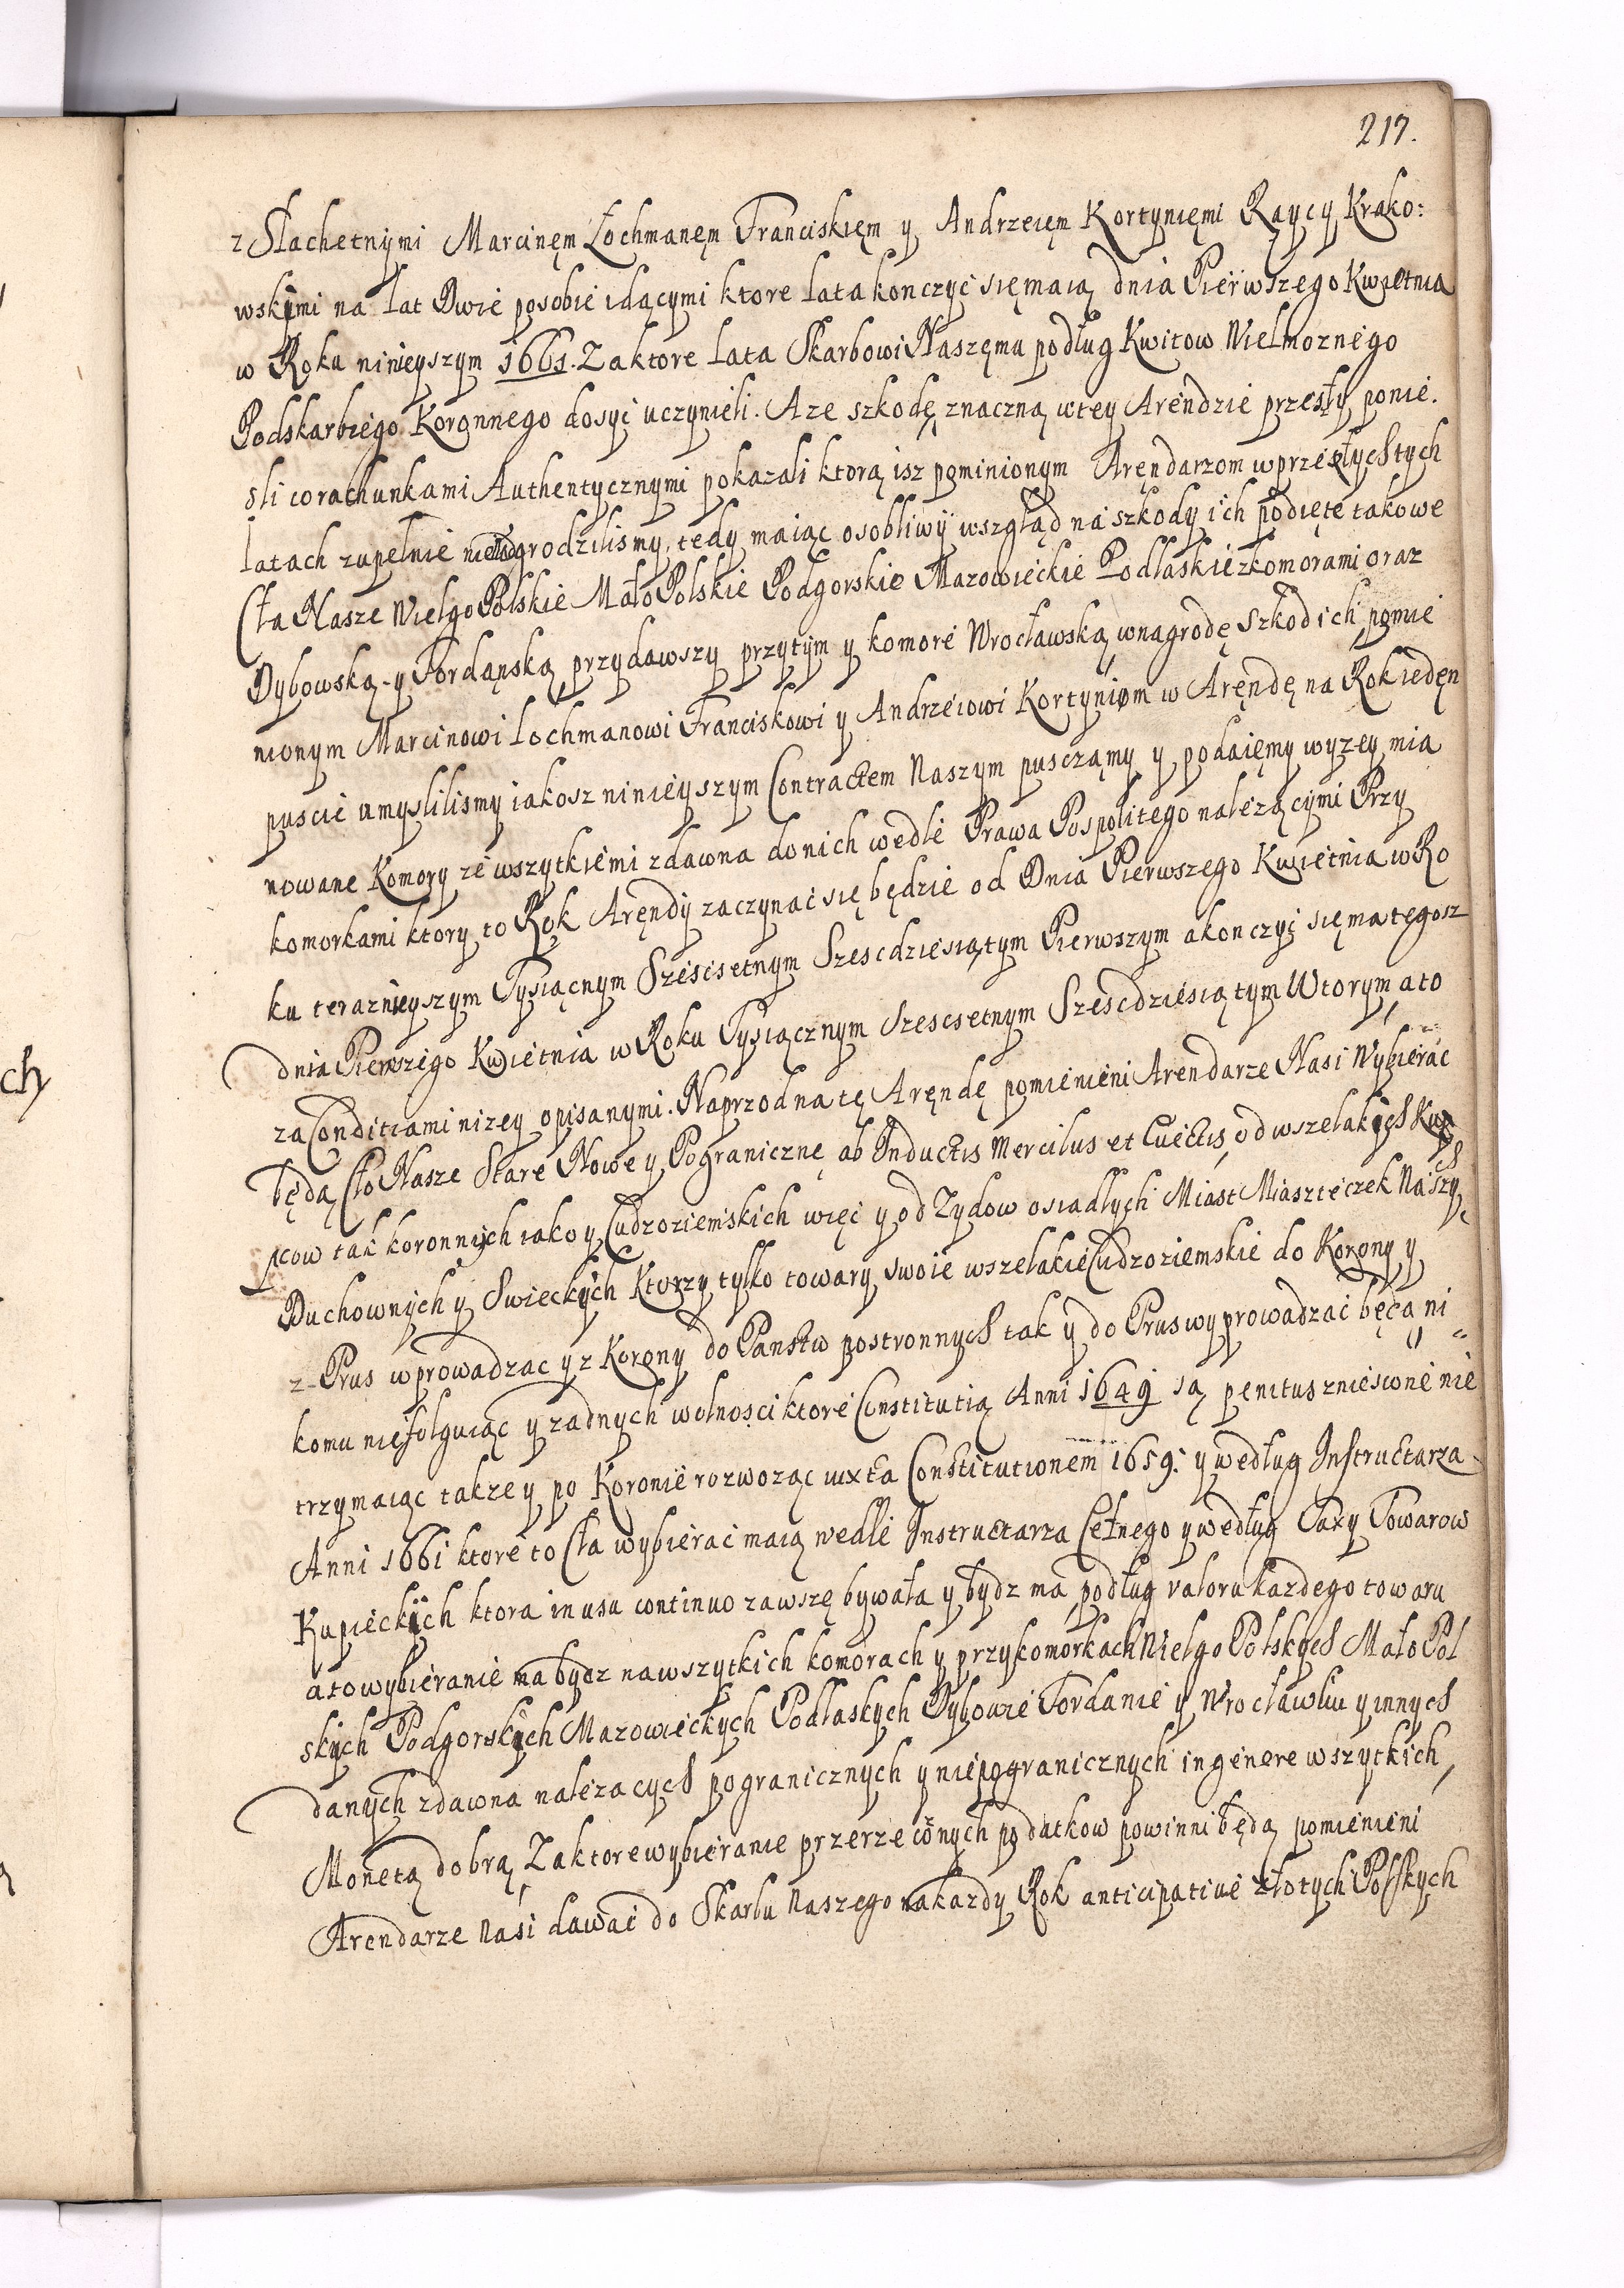 217.
z Slachetnymi Marcinęm Lochmanęm Franciskięm y Andrzeięm Kortynięmi Raycy Krako:
wskymi na lat Dwie posobie idącymi ktore lata konczyć się maią dnia Pierwszego Kwietnia
w Roku ninieyszym 1661. Za ktore lata Skarbowi Naszęmu podług Kwitow Wielmoznego
Podskarbiego Koronnego dosyć uczynieli. A ze szkodę znaczną w tey Arendzie przeszły ponie.
sli co rachunkami Authentycznymi pokazali ktorą isz pominionym Aręndarzom w przeszłych tych
latach zupełnie nie nadgrodzilismy, tedy maiąc osobliwy wszgląd na szkody ich podięte takowe
Cła Nasze Wielgo Polskie Mało Polskie Podgorskie Mazowieckie Podlaskie z komorami oraz
Dybowską y Fordąnską przydawszy przytym y komorę Wrocławską w nagrodę szkod ich pomie
nionym Marcinowi Lochmanowi Franciskowi y Andrzeiowi Kortyniom w Aręndę na Rok iedęn
puscić umyslilismy iakosz ninieyszym Contractem Naszym pusczamy y podaięmy wyzey mia
nowane Komory ze wszytkiemi zdawna do nich wedle Prawa Pospolitego nalezącymi Przy
komorkami ktory to Rok Aręndy zaczynać się będzie od Dnia Pierwszego Kwietnia w Ro
ku teraznieyszym Tysiącnym Szescsetnym Szescdziesiątym Pierwszym a konczyć się ma tęgosz
dnia Pierwszego Kwietnia w Roku Tysiącznym Szescsetnym Szescdziesiątym Wtorym, a to
za Conditiami nizey opisanymi. Naprzod na tę Aręndę pomienieni Arendarze Nasi Wybierać
będą Cło Nasze Stare Nowe y Pogranicznę ab Inductis Mercibus et Euectis, od wszelakięch Kup
pcow tak koronnych iako y Cudzoziemskich więc y od Zydow osiadłych Miast Miasteczek Naszych,
Duchownych y Swieckych Ktorzy tylko towary swoie wszelakie Cudzoziemskie do Korony y
z Prus wprowadzac y z Korony do Panstw postronnych tak y do Prus wyprowadzać będą ni
komu nie folguiąc y zadnych wolnosci ktore Constitutią Anni 1649 są penitus zniesione nie
trzymaiąc takze y po Koronie rozwoząc iuxta Constitutionem 1659. y według Instructarza
Anni 1661 ktore to Cła wybierać maią wedle Instructarza Cełnego y według Taxy Towarow
Kupieckych ktora in usu continuo zawszę bywała y bydz ma podług valoru kazdego towaru
a to wybieranie ma bydz na wszytkich komorach y przykomorkach Wielgo Polskych Mało Pol
skych Podgorskych Mazowieckych Podlaskych Dybowie Fordanie y Wrocławliu y innych
danych zdawna nalezacych pogranicznych y niepogranicznych in genere wszytkich,
Monetą dobrą, Za ktore wybieranie przerzeczonych podatkow powinni będą pomienieni
Arendarze Nasi dawać do Skarbu Naszego na kazdy Rok anticipative złotych Polskych